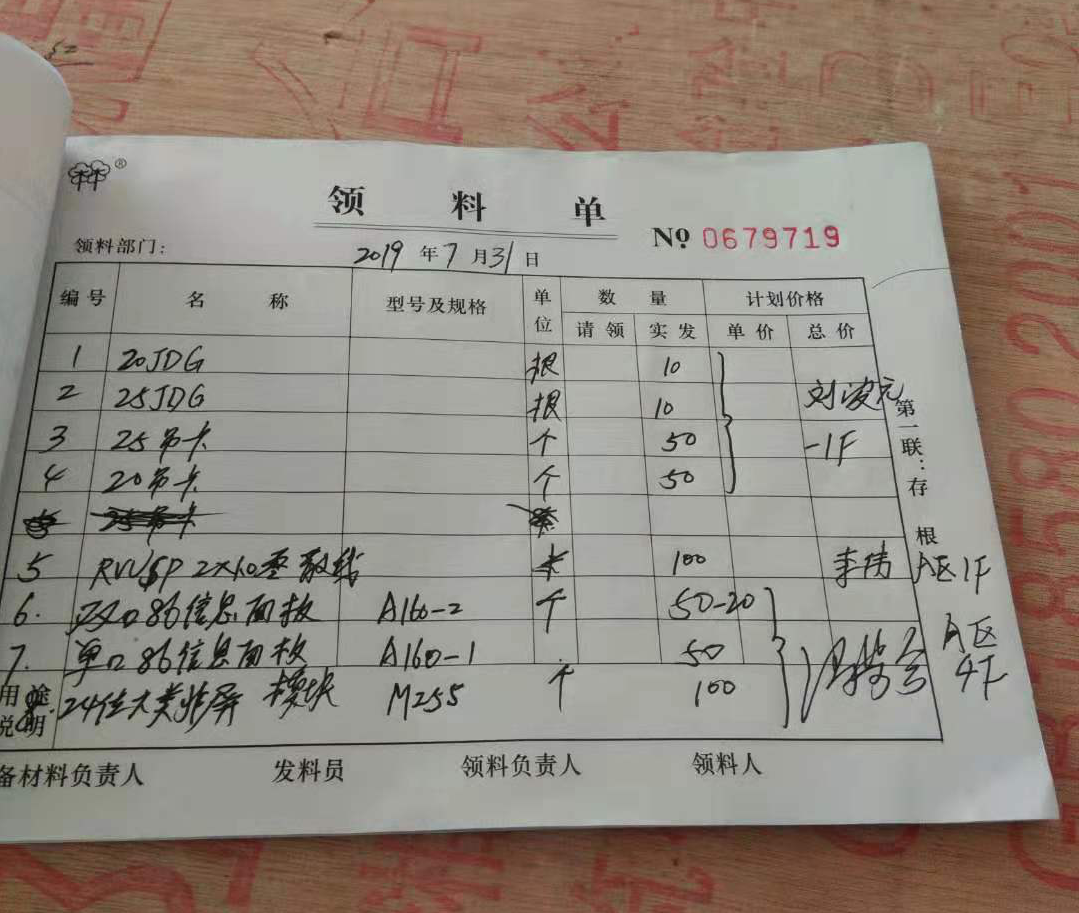 领 料 单
№ 0679719
领料部门: 2019 年 7 月 31 日
编号 名 称 型号及规格 单位 数 量 计划价格
请领 实发 单价 总价
1 20JDG 根 10
2 25JDG 根 10 刘波元
3 25吊卡 个 50 -1F
4 20吊卡 个 50
5 RVVSP 2×1.0 线 100 李伟 A区1F
6. 双口86信息面板 A160-2 个 50-20
7. 单口86信息面板 A160-1 50 A区
8. 模块 M255 个 100 4F
用途说明
备材料负责人 发料员 领料负责人 领料人
第一联:存根